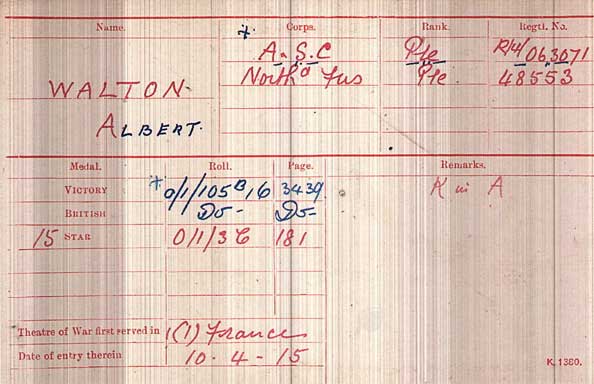 Name. Corps. Rank. Regtl. No.
+ A. S. C Pte R/4/063071
WALTON. North'd Fus Pte 48553
ALBERT.
Medal. Roll. Page. Remarks.
VICTORY + O/1/105 B 16 3439. K in A
BRITISH Do - Do -
15 STAR O/1/3 C 181
Theatre of War first served in 1(1) France
Date of entry therein 10 . 4 - 15
K. 1380.